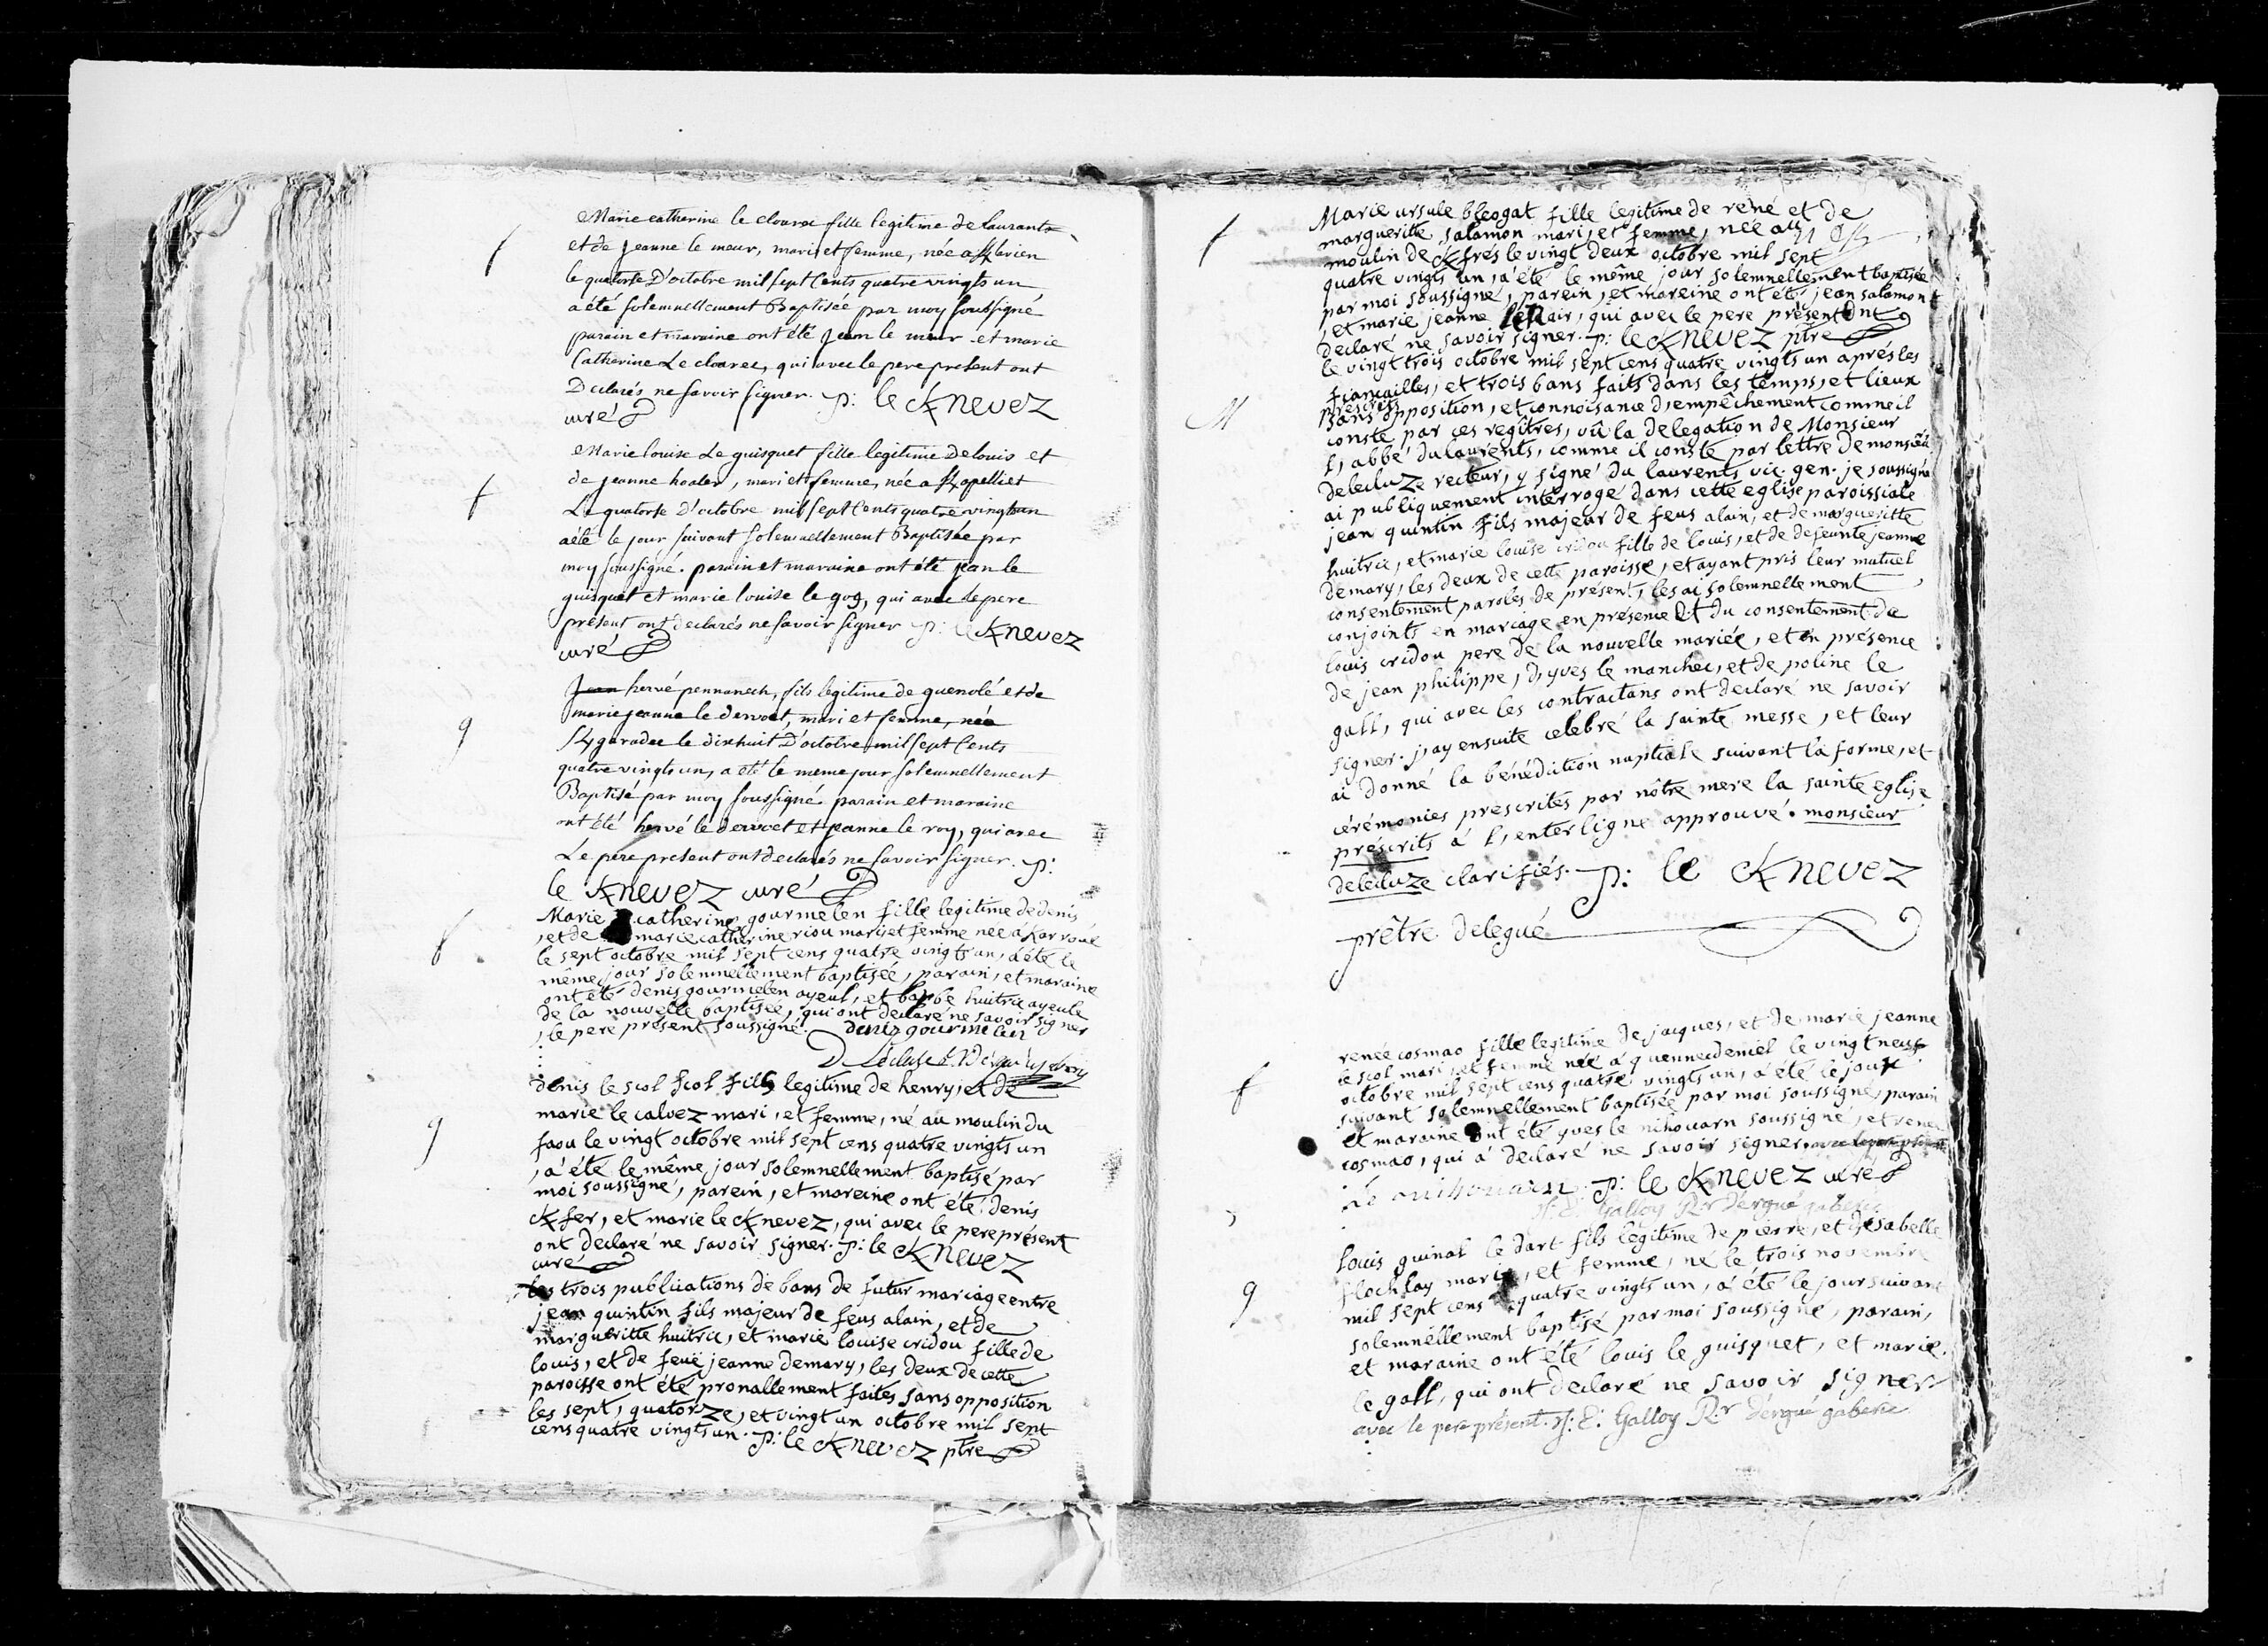 f
Marie catherine le cloarec fille legitime de Laurants
et de jeanne le meur, mari et femme, née a
le quatorse D'octobre mil sept Cents quatre vingts un
a été solemnellement Baptisée par moy soussigné
parain et maraine ont été jean le meur et marie
Catherine Le cloarec, qui avec le pere présent ont
Declarés ne savoir signer. p: le Knevez
curé
f
Marie louise Le guisquet fille legitime De louis et
de jeanne, mari et femme, née a Kapelliet
Le quatorse D'octobre mil sept Cents quatre vingts un
a été le jour suivant solemnellement Baptisée par
moy soussigné. parain et maraine ont été jean le
guisquet et marie louise le gog, qui avec le pere
présent ont declarés ne savoir signer p: le Knevez
curé
g
jean hervé pennanech, fils legitime de guenolé et de
marie jeanne le dervoet, mari et femme, née
Kgaradec le dixhuit D'octobre mil sept Cents
quatre vingts un, a été le meme jour solemnellement
Baptisé par moy soussigné parain et maraine
ont été hervé le dervoet et jeanne le roy, qui avec
Le pere présent ont declarés ne savoir signer. p:
le Knevez curé
f
Marie catherine gourmelen fille legitime de denis
, et de marie catherine riou mari et femme née a Karroué
le sept octobre mil sept cens quatre vingts un, a été le
même jour solemnellement baptisée, parain, et maraine
ont été denis gourmelen ayeul, et barbe huitric ayeule
de la nouvelle baptisée, qui ont declaré ne savoir signer
, le pere présent soussigné. Deniz gourmelen
D Lécluse
g
denis le scol scol fils legitime de henry, et de
marie le calvez mari, et femme, né au moulin du
faou le vingt octobre mil sept cens quatre vingts un
, a été le même jour solemnellement baptisé par
moi soussigné, parein, et mareine ont été denis
Kfer, et marie le Knevez, qui avec le pere présent
ont declaré ne savoir signer. p: le Knevez
curé
les trois publications de bans de futur mariage entre
jean quintin fils majeur de feus alain, et de
margueritte huitric, et marie louise cridou fille de
louis, et de feuë jeanne demary, les deux de cette
paroisse ont été pronallement faites sans opposition
les sept, quatorze, et vingt un octobre mil sept
cens quatre vingts un. p: le Knevez ptre
f
Marie ursule bleogat fille legitime de rené et de
margueritte salamon mari, et femme, née au
moulin de Kfrés le vingt deux octobre mil sept
quatre vingts un, a été le même jour solemnellement baptisée
par moi soussigné, parein, et mareine ont été jean salamon
, et marie jeanne, qui avec le pere présent ont
declaré ne savoir signer. p: le Knevez ptre
M
le vingt trois octobre mil sept cens quatre vingts un aprés les
fiancailles, et trois bans faits dans les temps, et lieux
préscrits
sans opposition, et connoisance d,empêchement comme il
conste par ces regîtres, vû la delegation de Monsieur
l, abbé dulaurents, comme il conste par lettre de monsieur
delecluze recteur, y signé du laurents vic. gen. je soussigné
ai publiquement intérrogé dans cette eglise paroissiale
jean quintin fils majeur de feus alain, et de margueritte
huitric, et marie louise cridou fille de louis, et de defeunte jeanne
demary, les deux de cette paroisse, et ayant pris leur mutuel
consentement paroles de présent, les ai solemnellement
conjoints en mariage en présence et du consentement de
louis cridou pere de la nouvelle mariée, et en présence
de jean philippe, d, yves le manchec, et de poline le
gall, qui avec les contractans ont declaré ne savoir
signer. j,ay ensuite celebré la sainte messe, et leur
ai donné la bénédiction nuptiale suivant la forme, et
cérémonies prescrites par nôtre mere la sainte eglise
préscrits à l, enterligne approuvé. monsieur
delecluze clarifiés. p: le Knevez
prêtre delegué
f
renée cosmao fille legitime de jacques, et de marie jeanne
le scol mari, et femme née à quennecdeniel le vingt neuf
octobre mil sept cens quatre vingts un, a été le jour
suivant solemnellement baptisée par moi soussigné, parain
et maraine ont été yves le nihouarn soussigné, et renée
cosmao, qui a declaré ne savoir signer. avec le pere présent
Le nihouarn p: le Knevez curé
Galloy R.r dérgué gaberic
g
Louis guinal le dart fils legitime de pierre, et d,isabelle
flochlay mari, et femme, né le trois novembre
mil sept cens quatre vingts un, a été le jour suivant
solemnéllement baptisé par moi soussigné, parain,
et maraine ont été louis le guisquet, et marie
le gall, qui ont declaré ne savoir signer
avec le pere présent. E: Galloy R.r dérgué gaberic